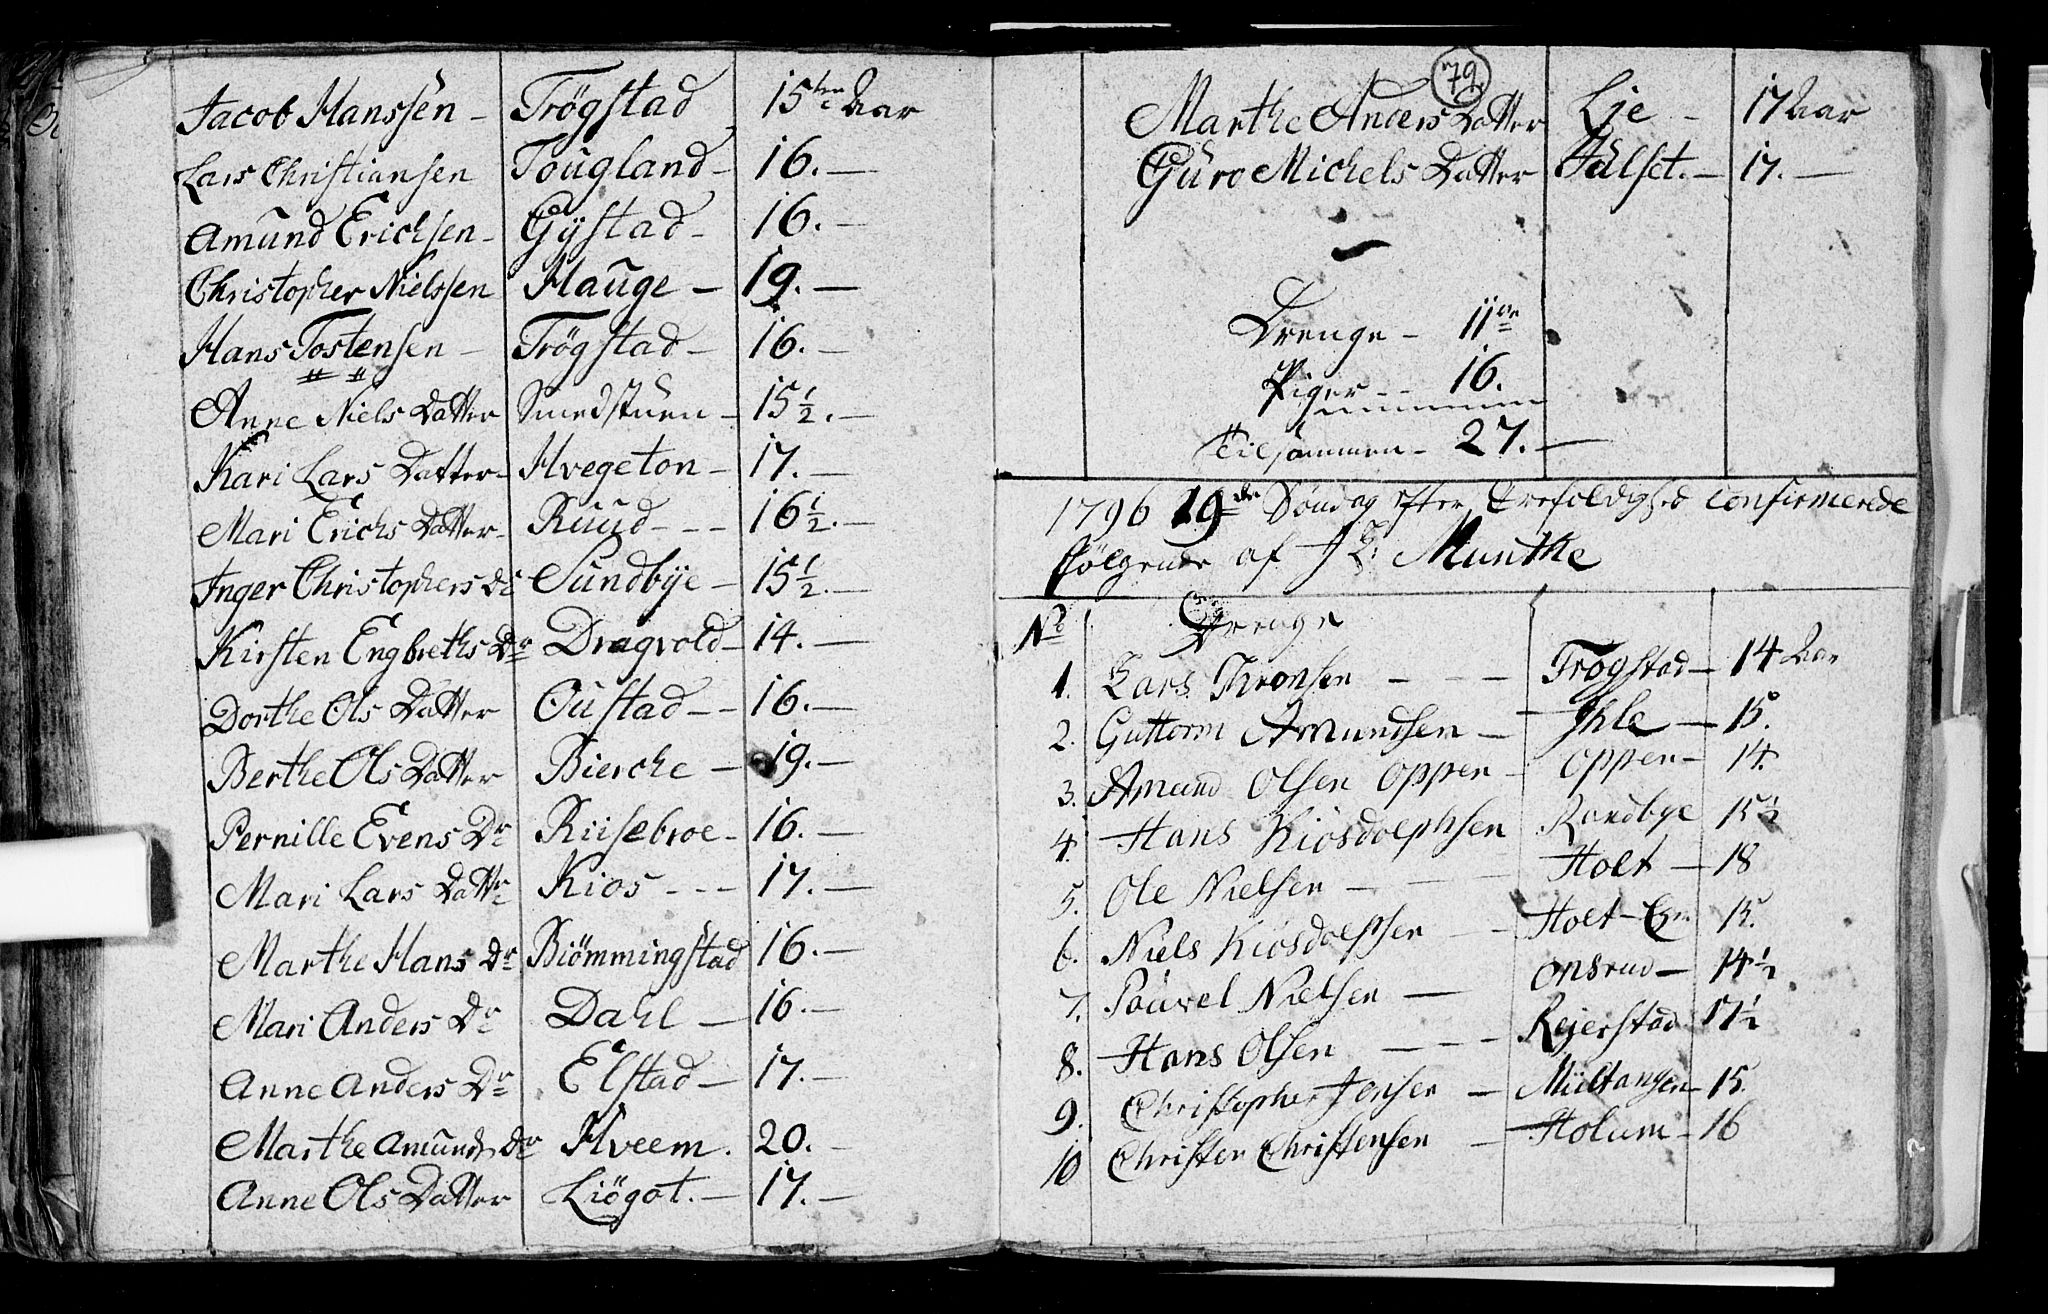 Jacob Hanssen - Trögstad 15 ten Aar
Lars Christiansen Tougland - 16. -
Amund Erichsen - Gÿstad - 16. -
Christopher Nielssen Hauge - 19. -
Hans Tostensen - Trögstad - 16. -
Anne Niels Datter Smedstuen - 15 1/2. -
Kari Lars Datter - Hvegeton - 17. -
Mari Erichs Datter - Ruud - - - 16 1/2. -
Inger Christophers Dr Sundbÿe - 15 1/2. -
Kirsten Engbreths Dr Dragvold - 14. -
Dorthe Ols Datter Oustad - - 16. -
Berthe Ols Datter Bierche - 19. -
Pernille Evens Dr Riisebroe - 16. -
Mari Lars Dattr Kios - - - 17. -
Marthe Hans Dr Biömmingstad 16. -
Mari Anders Dr Dahl - 16. -
Anne Anders Dr Elstad - 17. -
Marthe Amunds Dr Hveem. 20. -
Anne Ols Datter Liögot. - 17. -
79
Marthe Anders Datter Lie - 17 Aar
Guro Michels Datter Julset. - 17. -
Drenge - 11ve
Piger - - 16.
Tilsammen - 27. -
1796 19de Søndag efter Trefoldighed confirmerede
følgende af Munthe
No Drenge
1. Lars Thronsen - - - Trogstad - 14 Aar
2. Guttorm Amundsen - Ihle - 15.
3. Amund Olsen Oppen - Oppen - 14.
4. Hans Kiosdolphsen Randbye 15 1/2
5. Ole Nielsen - - - Holt - 18
6. Niels Kiosdolphsen - Holt - 15.
7. Pouvel Nielsen - Onsrud - 14 1/2
8. Hans Olsen - - - Rejerstad 17 1/2
9. Christopher Jensen - Miiltangen - 15.
10 Christen Christensen - Holum - 16